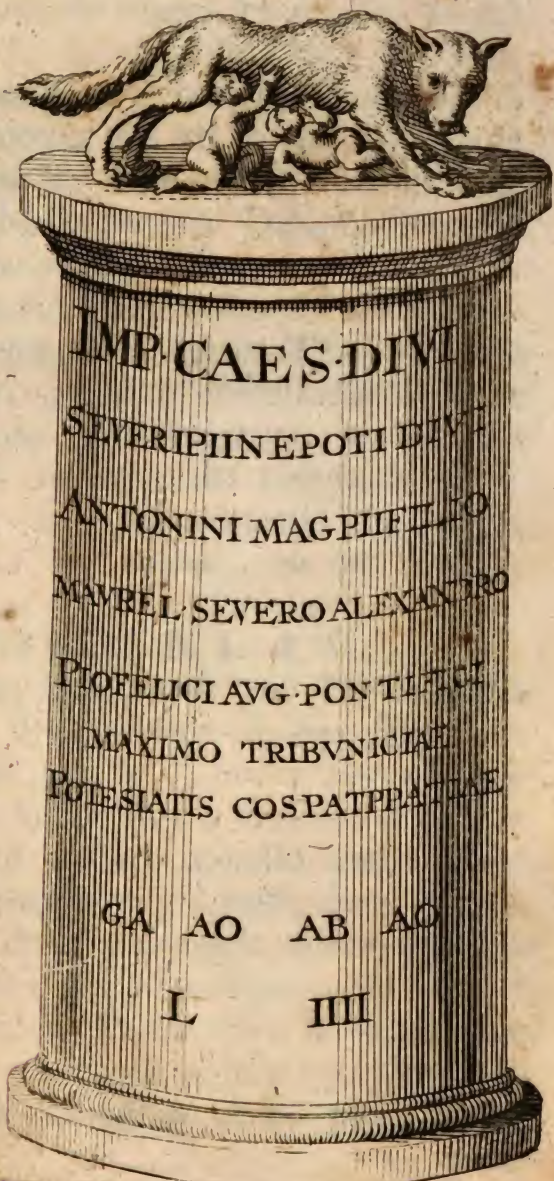 IMP·CAES·DIVI
SEVERIPIINEPOTI DIVI
ANTONINI MAGPIIFILIO
MAVREL·SEVEROALEXANDRO
PIOFELICI AVG·PONTIFICI
MAXIMO TRIBVNICIAE
POTESIATIS COSPATPPATIAE
GA AO AB AO
L IIII